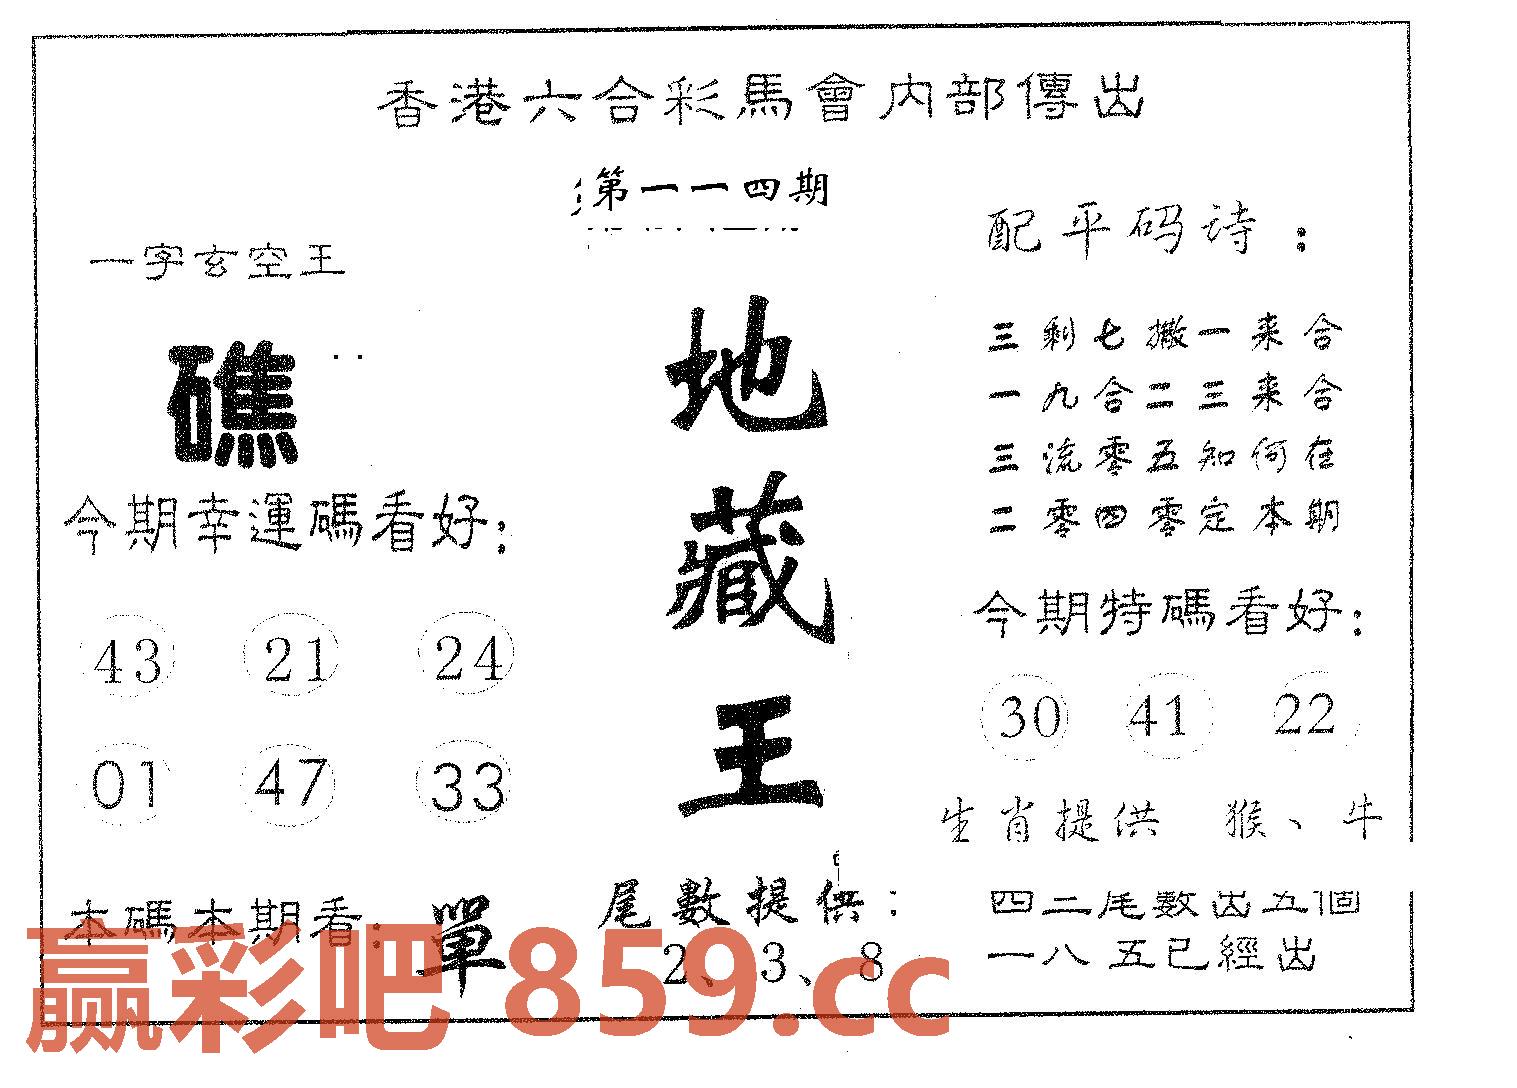 香港六合彩馬會內部傳出
第一一四期
一字玄空王
礁
今期幸運碼看好:
43 21 24
01 47 33
本碼本期看: 單
地藏王
尾數提供:
2、3、8
配平码诗:
三剩七撒一来合
一九合二三来合
三流零五知何在
二零四零定本期
今期特碼看好:
30 41 22
生肖提供 猴、牛
四二尾数出五個
一八五已經出
赢彩吧 859.cc